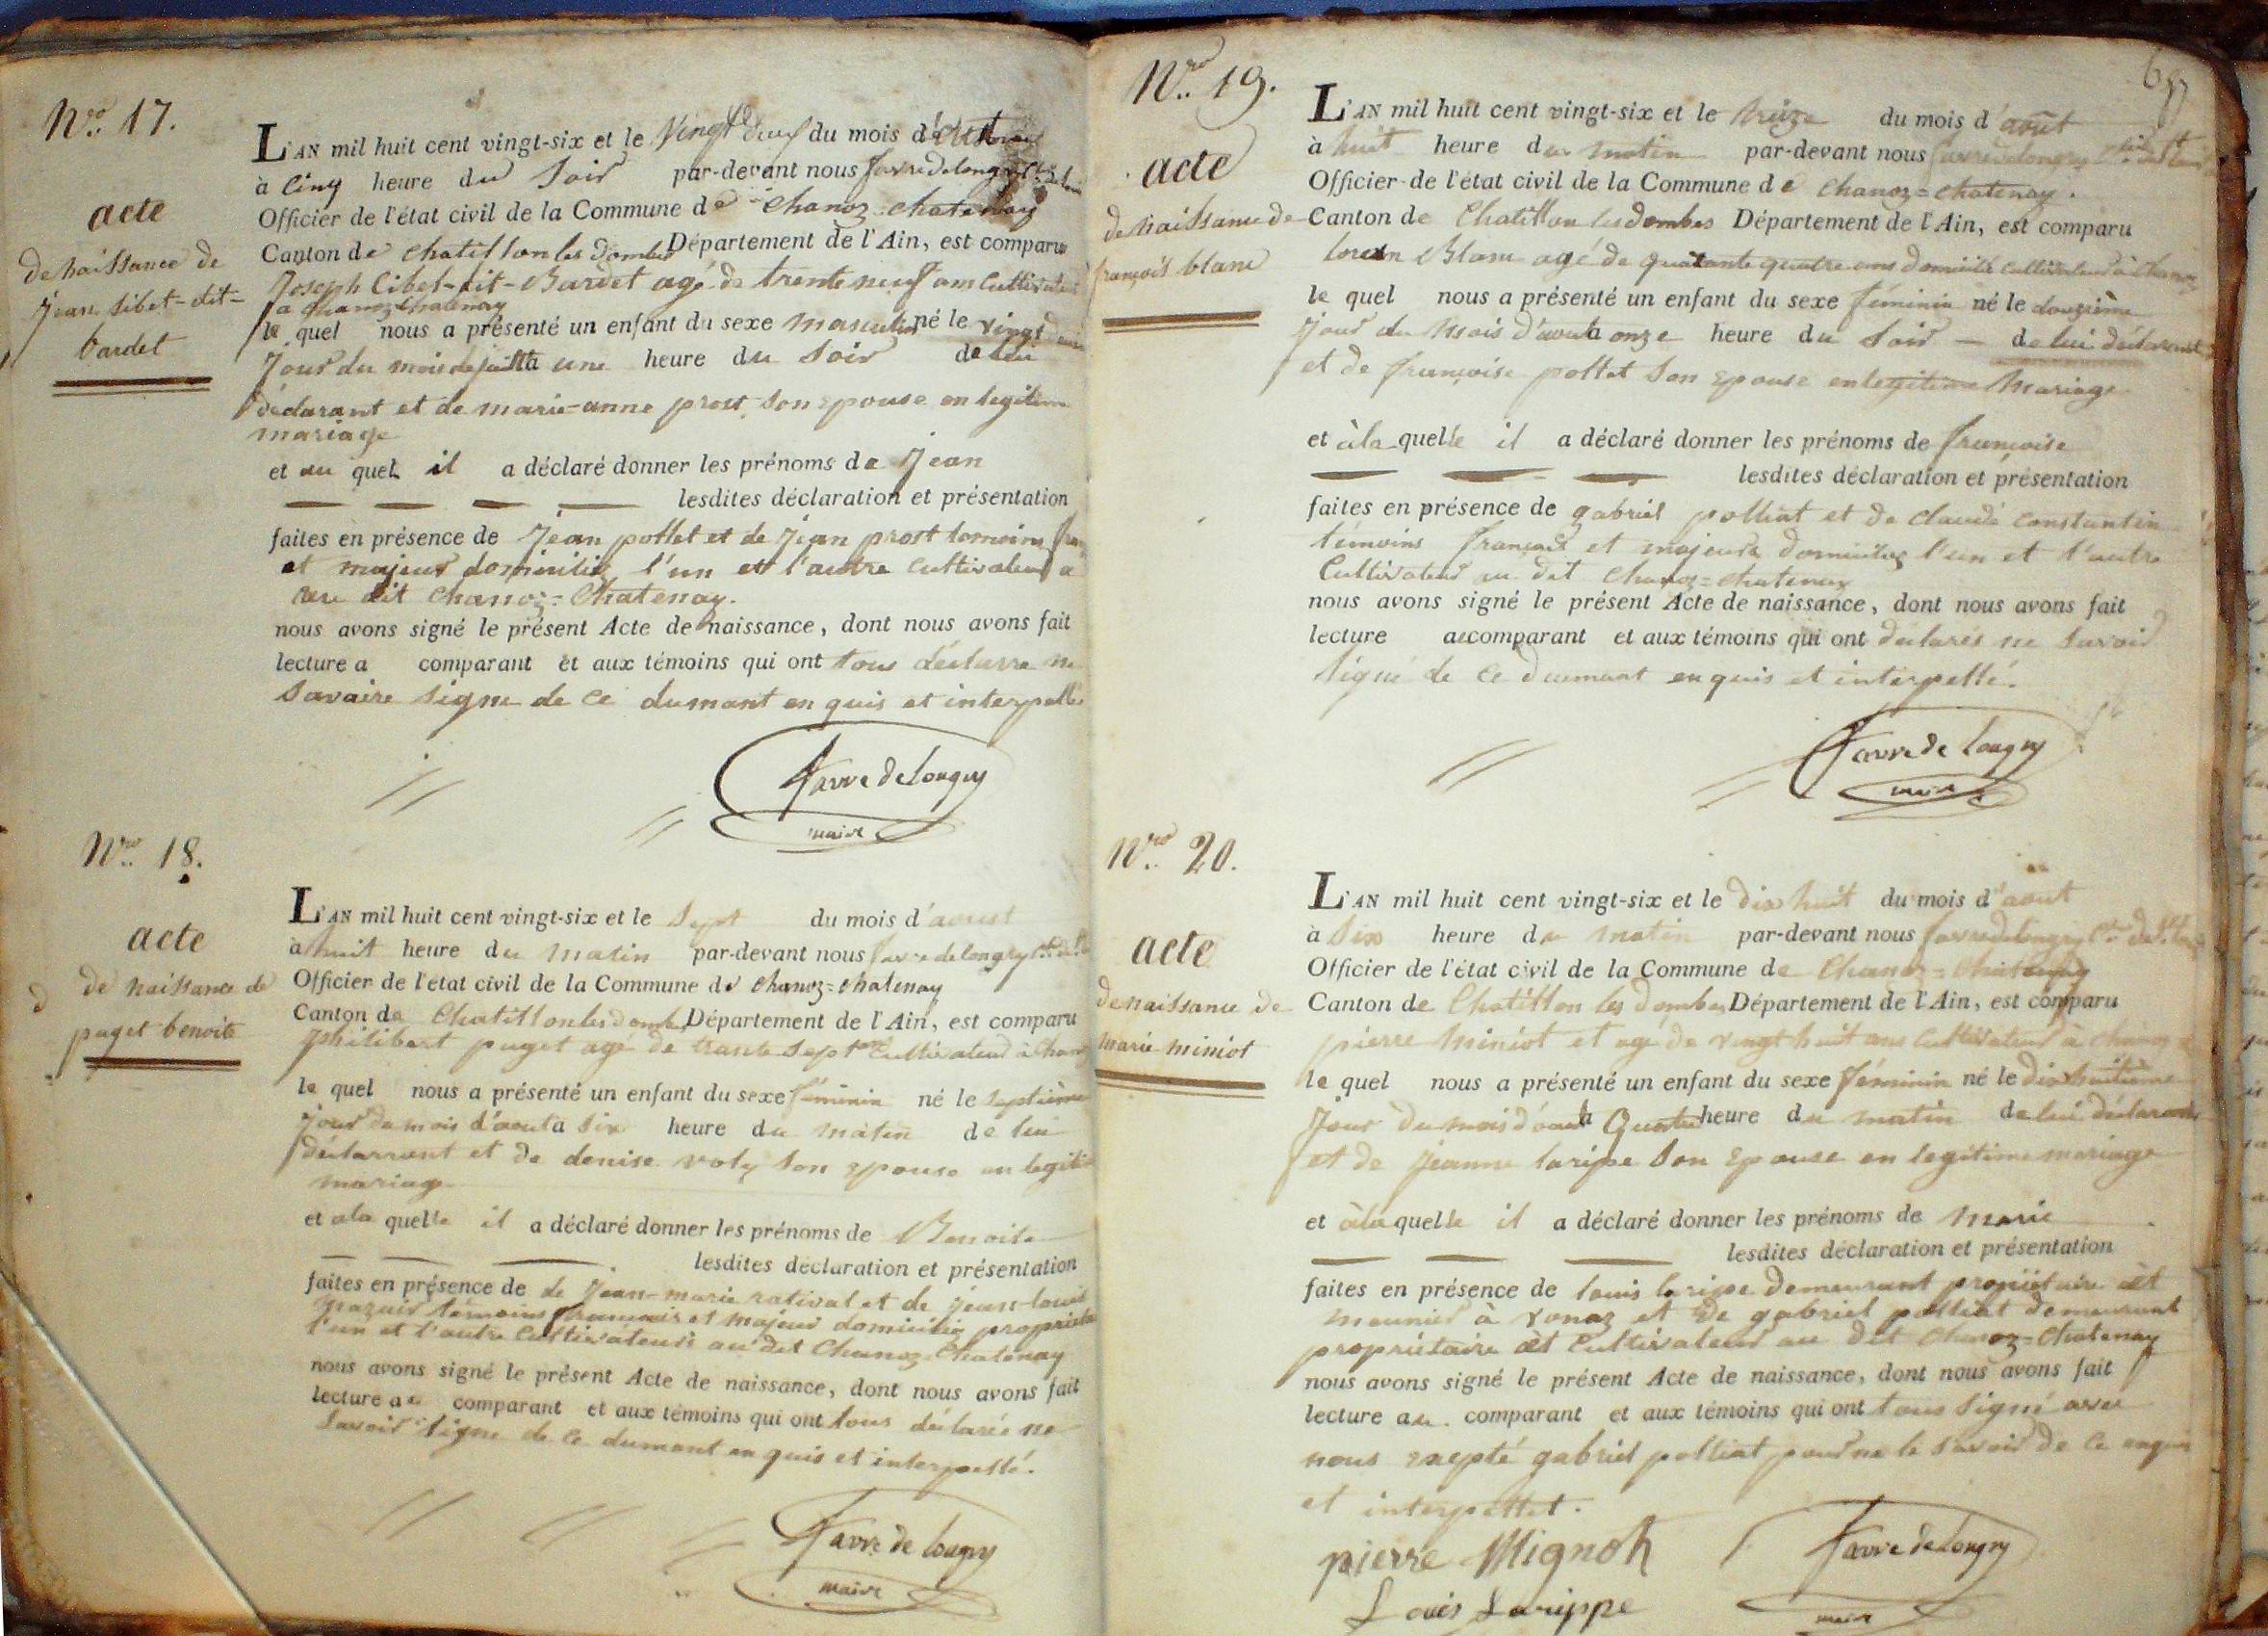 Nro. 17.
acte
de naissance de
Jean sibet-dit-
bardet
L'AN mil huit cent vingt-six et le Vingt deux du mois d'
à cinq heure du Soir par-devant nous favre de longry
Officier de l'état civil de la Commune de chanoz-chatenay
Canton de chatillon les dombes Département de l'Ain, est comparu
Joseph Cibet-dit-Bardet agé de trente neuf ans Cultivateur
a chanoz chatenay
le quel nous a présenté un enfant du sexe masculin né le vingt
Jour du mois de à une heure du Soir de lui
déclarant et de marie-anne prost son epouse en legitime
mariage
et au quel il a déclaré donner les prénoms de Jean
lesdites déclaration et présentation
faites en présence de Jean pollet et de Jean prost temoins
et majeur domicilié l'un et l'autre Cultivateur a
au dit Chanoz=Chatenay.
nous avons signé le présent Acte de naissance, dont nous avons fait
lecture a comparant et aux témoins qui ont tous déclarre ne
Savaire signe de ce dumant en quis et interpellé
favre de longry
maire
Nro. 18.
acte
de naissance de
puget benoite
L'AN mil huit cent vingt-six et le Sept du mois d'aoust
à huit heure du matin par-devant nous favre de longry
Officier de l'état civil de la Commune de chanoz=chatenay
Canton de Chatillon les dombes Département de l'Ain, est comparu
philibert puget agé de trante sept ans Cultivateur à Chanoz
le quel nous a présenté un enfant du sexe féminin né le septième
Jour du mois d'aout à six heure du matin de lui
déclarrant et de denise voly son epouse en legitime
mariage
et a la quelle il a déclaré donner les prénoms de Benoite
lesdites déclaration et présentation
faites en présence de de Jean-marie rativat et de jean-louis
temoins français et majeur domicilié propriétaire
l'un et l'autre Cultivateurs au dit Chanoz-Chatenay
nous avons signé le présent Acte de naissance, dont nous avons fait
lecture au comparant et aux témoins qui ont tous déclarée ne
Savoir signe de ce dumant en quis et interpellé.
favre de longry
maire
Nro. 19.
acte
de naissance de
françois blanc
L'AN mil huit cent vingt-six et le treize du mois d'août
à huit heure du matin par-devant nous favre de longry
Officier de l'état civil de la Commune de chanoz=chatenay.
Canton de Chatillon les dombes Département de l'Ain, est comparu
Blanc agé de quarante quatre ans domicilié cultivateur à chanoz
le quel nous a présenté un enfant du sexe féminin né le douzième
jour du mois d'aout à onze heure du Soir — de lui déclarant
et de françoise pollet Son epouse en legitime Mariage
et à la quelle il a déclaré donner les prénoms de françoise
lesdites déclaration et présentation
faites en présence de gabriel polliat et de claude constantin
témoins français et majeurs domiciliés l'un et l'autre
Cultivateur au dit Chanoz=chatenay
nous avons signé le présent Acte de naissance, dont nous avons fait
lecture au comparant et aux témoins qui ont déclarés ne savoir
signé de ce dumant en quis et interpellé.
favre de longry
maire
Nro. 20.
acte
de naissance de
marie miniot
L'AN mil huit cent vingt-six et le dix huit du mois d'aout
à Six heure du matin par-devant nous favre de longry
Officier de l'état civil de la Commune de Chanoz=Chatenay
Canton de Chatillon les dombes Département de l'Ain, est comparu
pierre Miniot et agé de vingt huit ans Cultivateur à chanoz
le quel nous a présenté un enfant du sexe féminin né le dix huitième
Jour du mois d'aout à Quatre heure du matin de lui déclarant
et de jeanne laripe son Epouse en legitime mariage
et à la quelle il a déclaré donner les prénoms de marie
lesdites déclaration et présentation
faites en présence de louis laripe demeurant propriétaire et
meunier à vonaz et de gabriel polliat demeurant
propriétaire et Cultivateur au dit Chanoz=Chatenay
nous avons signé le présent Acte de naissance, dont nous avons fait
lecture au comparant et aux témoins qui ont tous signé avec
nous excepté gabriel polliat pour ne le savoir de ce enquis
et interpellet.
pierre Mignot
Louis Larippe
favre de longry
maire